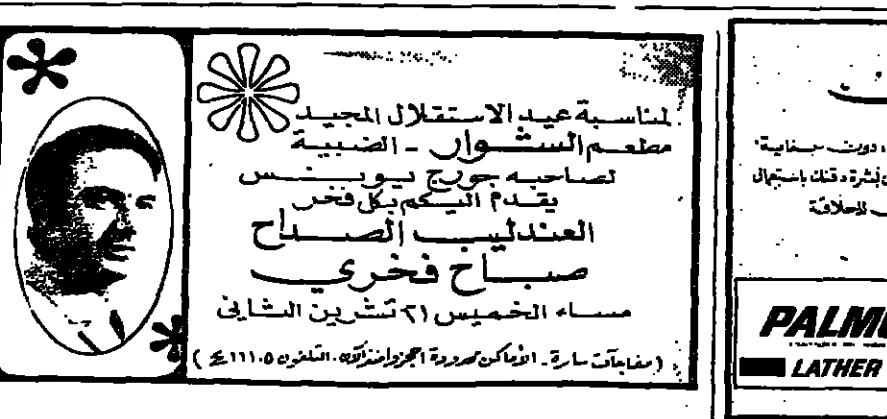 لمناسبة عيد الاستقلال المجيد
مطعم الشوار - الضبية
لصاحبه جورج يونس
يقدم اليكم بكل فخر
العندليب الصداح
صباح فخري
مساء الخميس ٢١ تشرين الثاني
(مفاجآت سارة - الأماكن محدودة احجزوا منذ الآن - التلفون
دون
لبشرة ذقنك
للحلاقة
LATHER